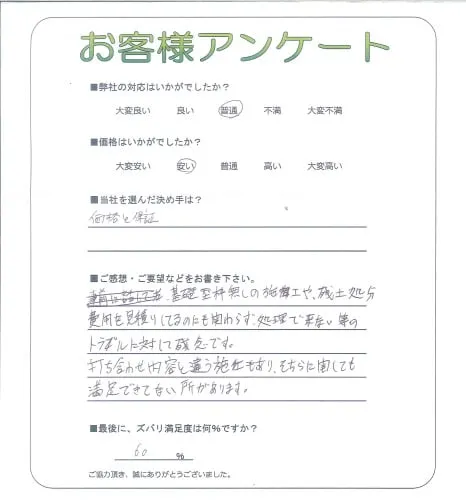 お客様アンケート
■弊社の対応はいかがでしたか？
大変良い 良い 普通 不満 大変不満
■価格はいかがでしたか？
大変安い 安い 普通 高い 大変高い
■当社を選んだ決め手は？
価格と保証
■ご感想・ご要望などをお書き下さい。
基礎型枠無しの施工や、残土処分
費用を見積りしてるのにも関わらず、処理で来ない等の
トラブルに対して残念です。
打ち合わせ内容と違う施工もあり、そちらに関しても
満足できてない所があります。
■最後に、ズバリ満足度は何%ですか？
60 %
ご協力頂き、誠にありがとうございました。